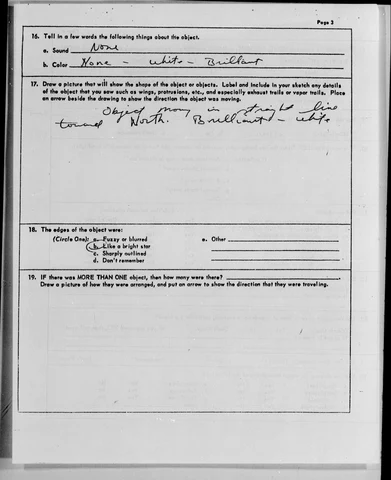 Page 3
16. Tell in a few words the following things about the object.
a. Sound None
b. Color None - White - Brillant
17. Draw a picture that will show the shape of the object or objects. Label and include in your sketch any details
of the object that you saw such as wings, protrusions, etc., and especially exhaust trails or vapor trails. Place
an arrow beside the drawing to show the direction the object was moving.
Object moving in straight line
toward North. Brilliant - white
18. The edges of the object were:
(Circle One): a. Fuzzy or blurred e. Other
b. Like a bright star
c. Sharply outlined
d. Don't remember
19. IF there was MORE THAN ONE object, then how many were there?
Draw a picture of how they were arranged, and put an arrow to show the direction that they were traveling.